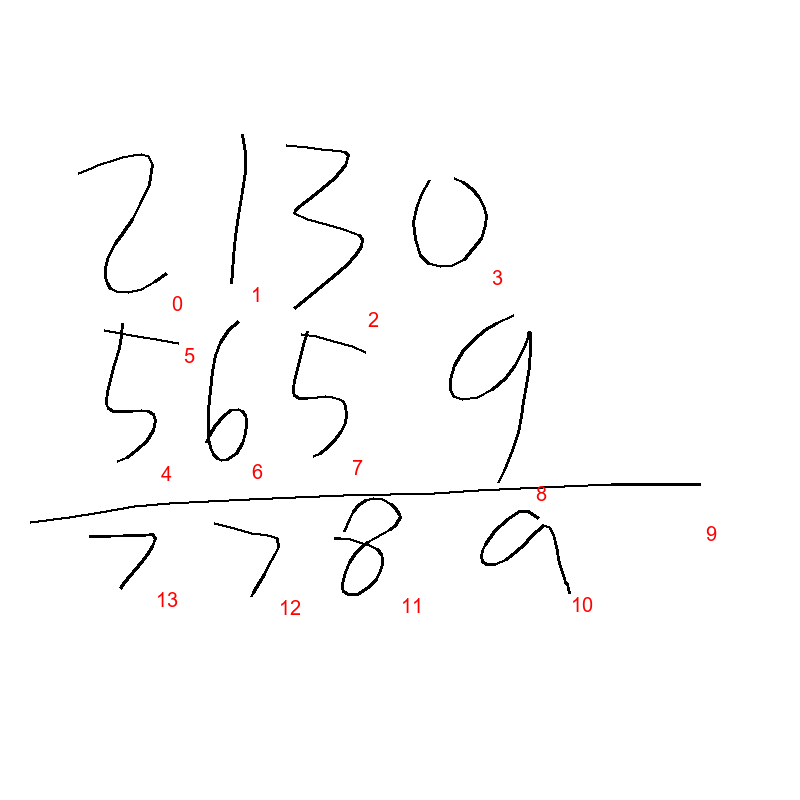 2130
0 1 2 3
5659
5 4 6 7 8
7789
9 13 12 11 10